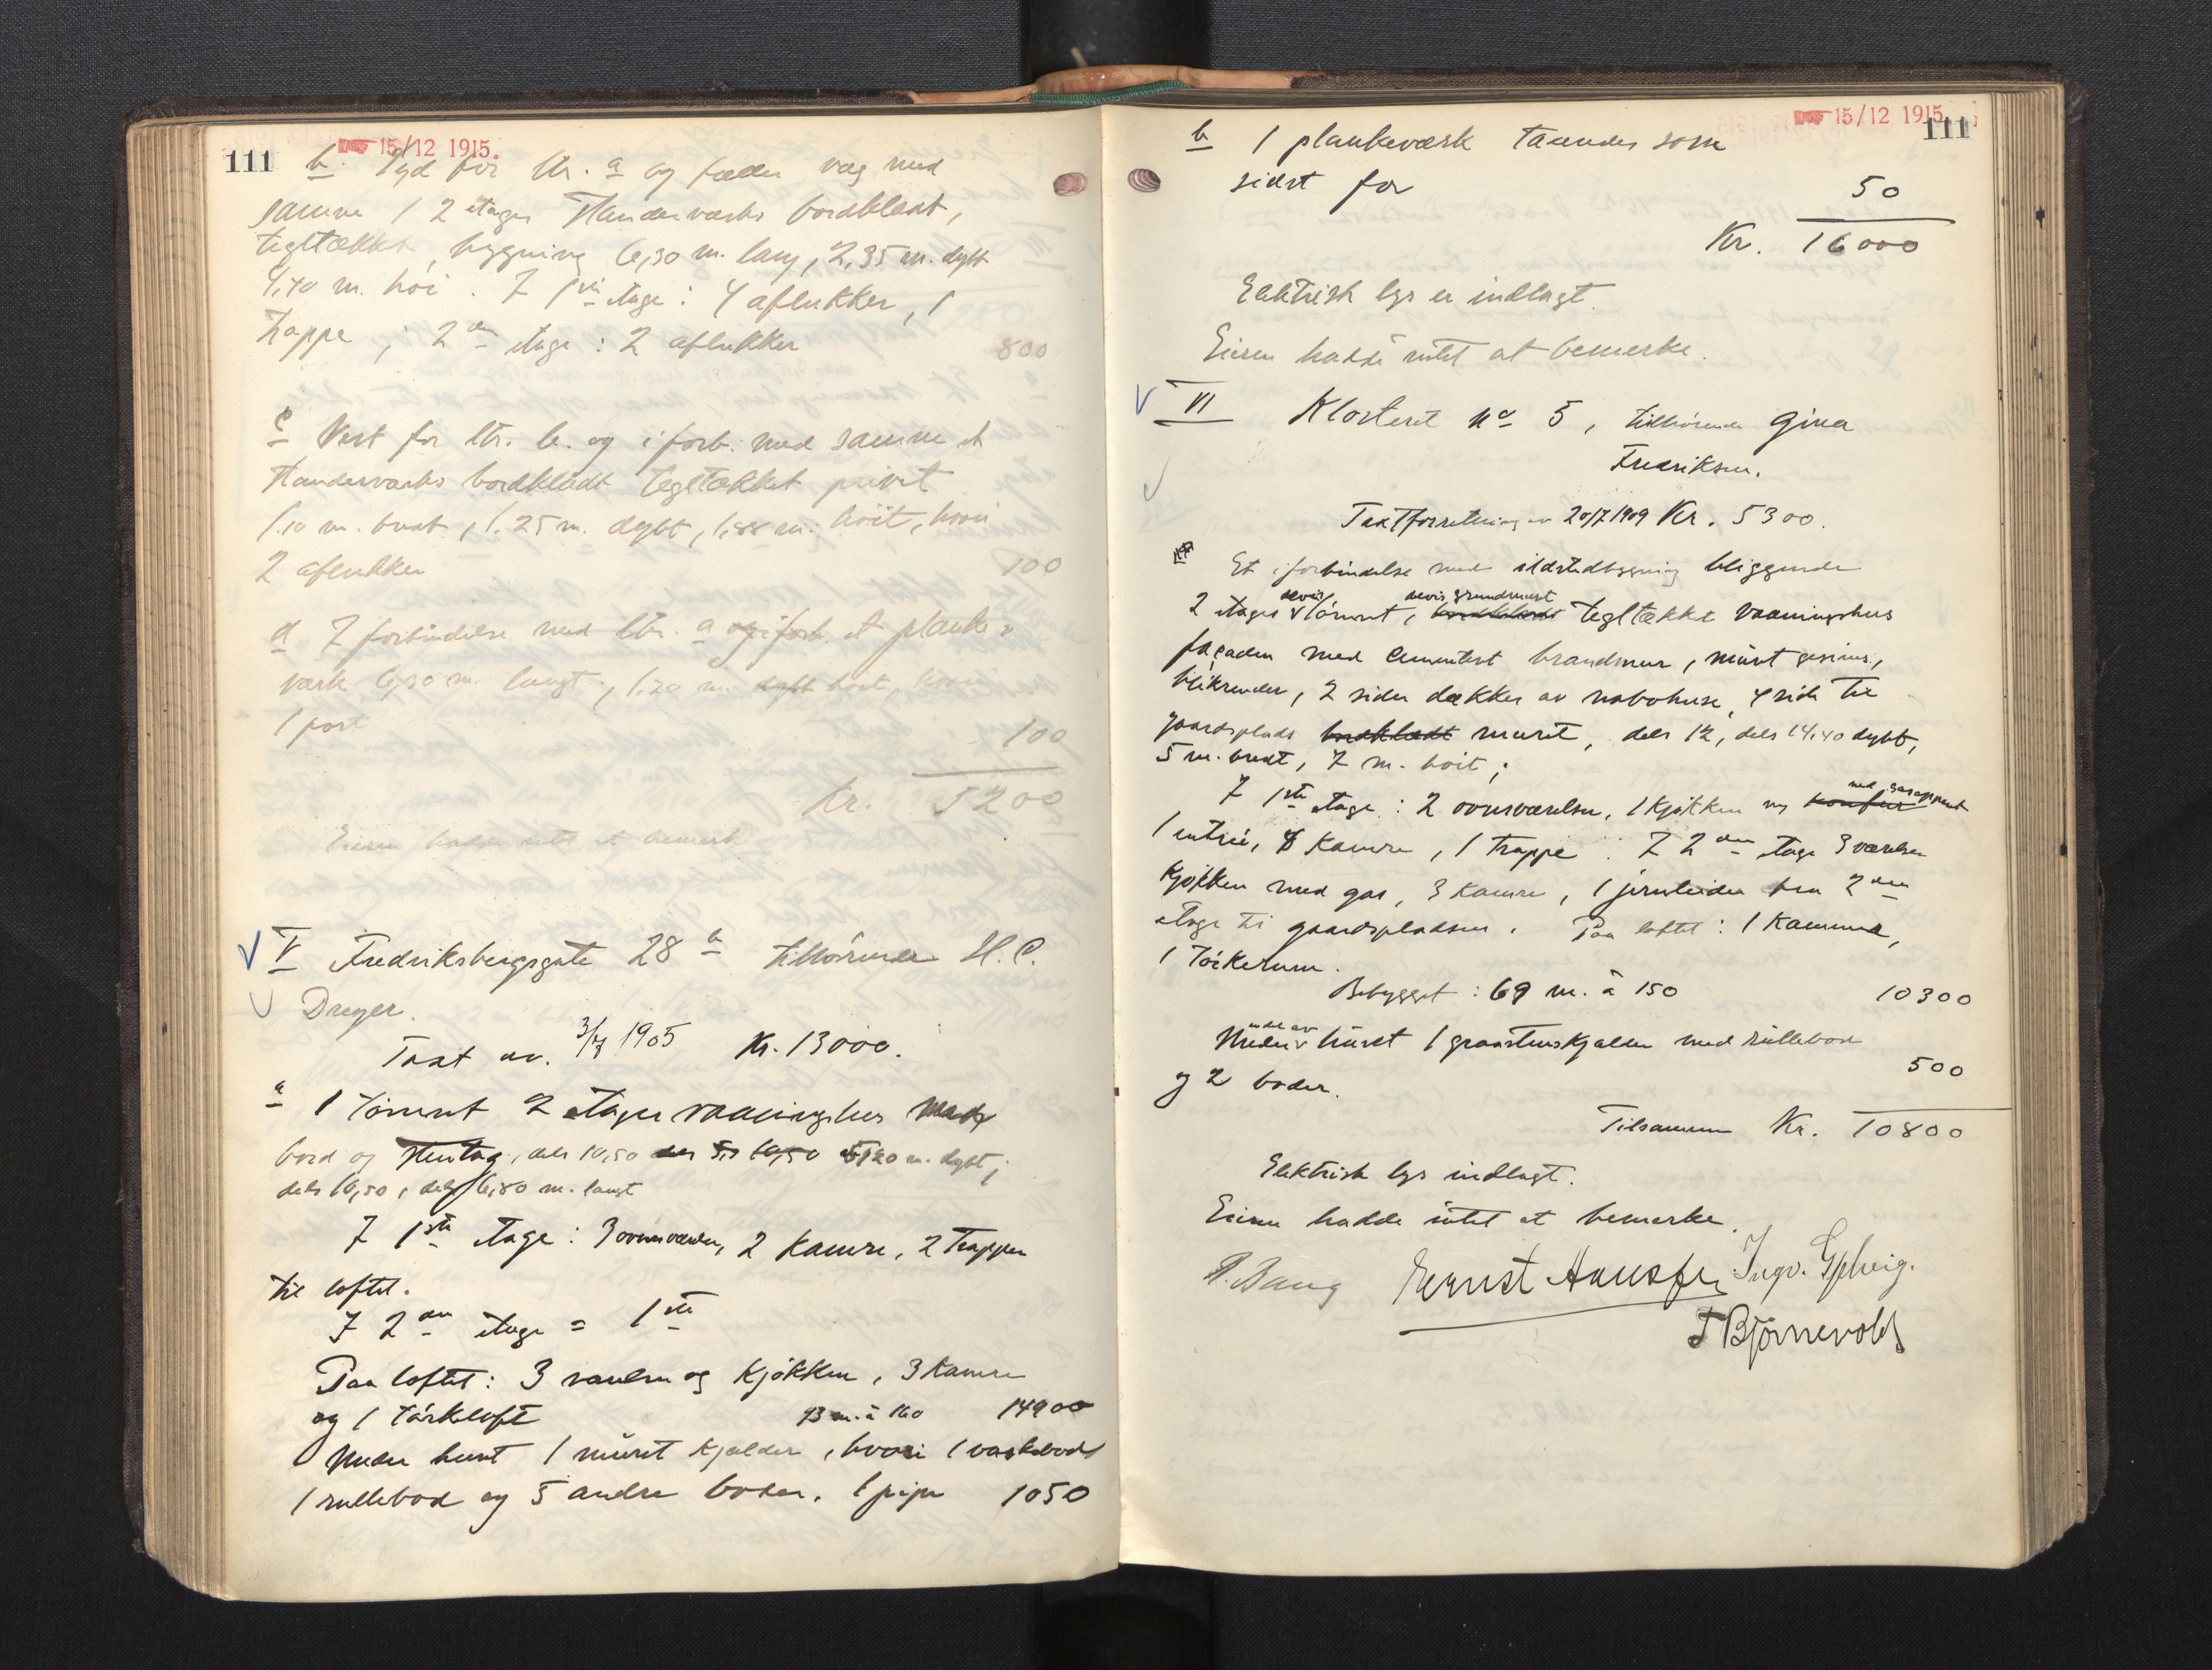 111 15/12 1915.
b. Syd for ltr. a og fælles væg med
samme 1 2 etages standerværks bordklædt,
tegltækket bygning 6,30 m. lang, 2,35 m. dybt
4,40 m. høi. I 1ste etage: 4 aflukker, 1
trappe, i 2den etage: 2 aflukker 800
c Vest for ltr. b. og i forb. med samme et
standerværks bordklædt tegltækket privet
1.10 m. bredt, 1.25 m. dybt, 1,88 m. høit, hvori
2 aflukker 100
d I forbindelse med ltr. a og i forb. et plank-
værk 6,30 m. langt, 1.20 m. dybt høit, hvori
1 port 100
Kr. 5200
Eieren hadde intet at bemerke
V Fredriksbergsgate 28 b tilhørende H. C.
Dreyer.
Takst av. 3/7 1905 Kr. 13000.
a 1 tømret 2 etages vaaningshus med
bord og stentag, dels 10,50 5,20 m. dybt;
dels 10,50, dels 6,80 m. langt
I 1ste etage: 3 ovnsværelser, 2 kamre, 2 trapper
til loftet.
I 2den etage = 1ste
Paa loftet: 3 værelser og kjøkken, 3 kamre
og 1 tørkeloft 93 m. à 160 14900
Under huset 1 muret kjælder, hvori 1 vaskebod
1 rullebod og 5 andre boder. 1 pipe 1050
15/12 1915. 111
b 1 plankeværk taxeres som
sidst for 50
Kr. 16000
Elektrisk lys er indlagt.
Eieren hadde intet at bemerke.
VI Klosteret no 5, tilhørende Gina
Fredriksen.
Taktforretning av 20/7 1909 Kr. 5300.
Et i forbindelse med ildstedbygning bliggende
2 etages delvis tømret, delvis grundmuret bordklædt tegltækket vaaningshus
façaden med cementert brandmur, muret gesims,
blikrender, 2 sider dækket av nabohuse, 4 side til
gaardsplads bordklædt muret, dels 12, dels 14,40 dybt,
5 m. bredt, 7 m. høit;
I 1ste etage: 2 ovnsværelser, 1 kjøkken og komfur med gasapparat
1 entrée, kamre, 1 trappe. I 2den etage 3 værelser
kjøkken med gas, 3 kamre, 1 jernleider fra 2den
etage til gaardspladsen. Paa loftet: 1 kammer,
1 tørkerum.
Bebygget: 69 m. à 150 10300
Under en del av huset 1 graastenskjælder med rullebod
og 2 boder. 500
Tilsammen Kr. 10800
Elektrisk lys indlagt.
Eieren hadde intet at bemerke.
P. Bang Ernst Hansen Ingv.
T Bjørnevold